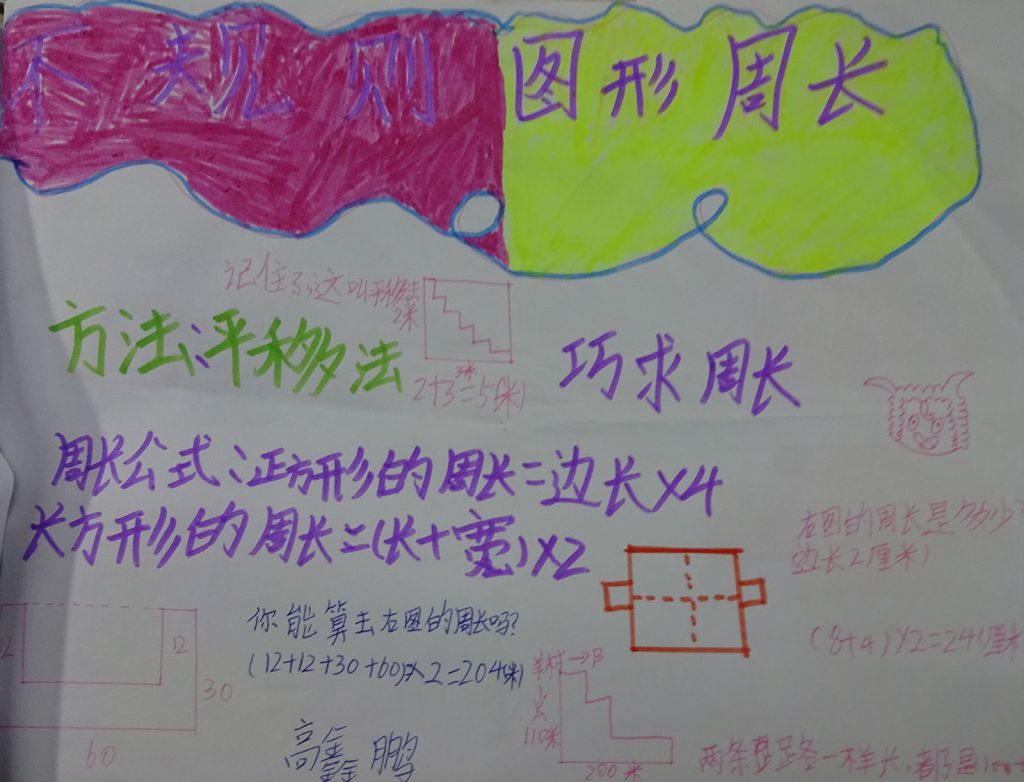 不规则图形周长
记住了,这叫平移法
2米
3米
2+3=5(米)
方法:平移法
巧求周长
周长公式:正方形的周长=边长×4
长方形的周长=(长+宽)×2
左图的周长是多少?
边长2厘米)
(8+4)×2=24(厘米
12
12
30
60
你能算出左图的周长吗?
(12+12+30+60)×2=204(米)
110米
200米
高鑫鹏
两条路一样长,都是